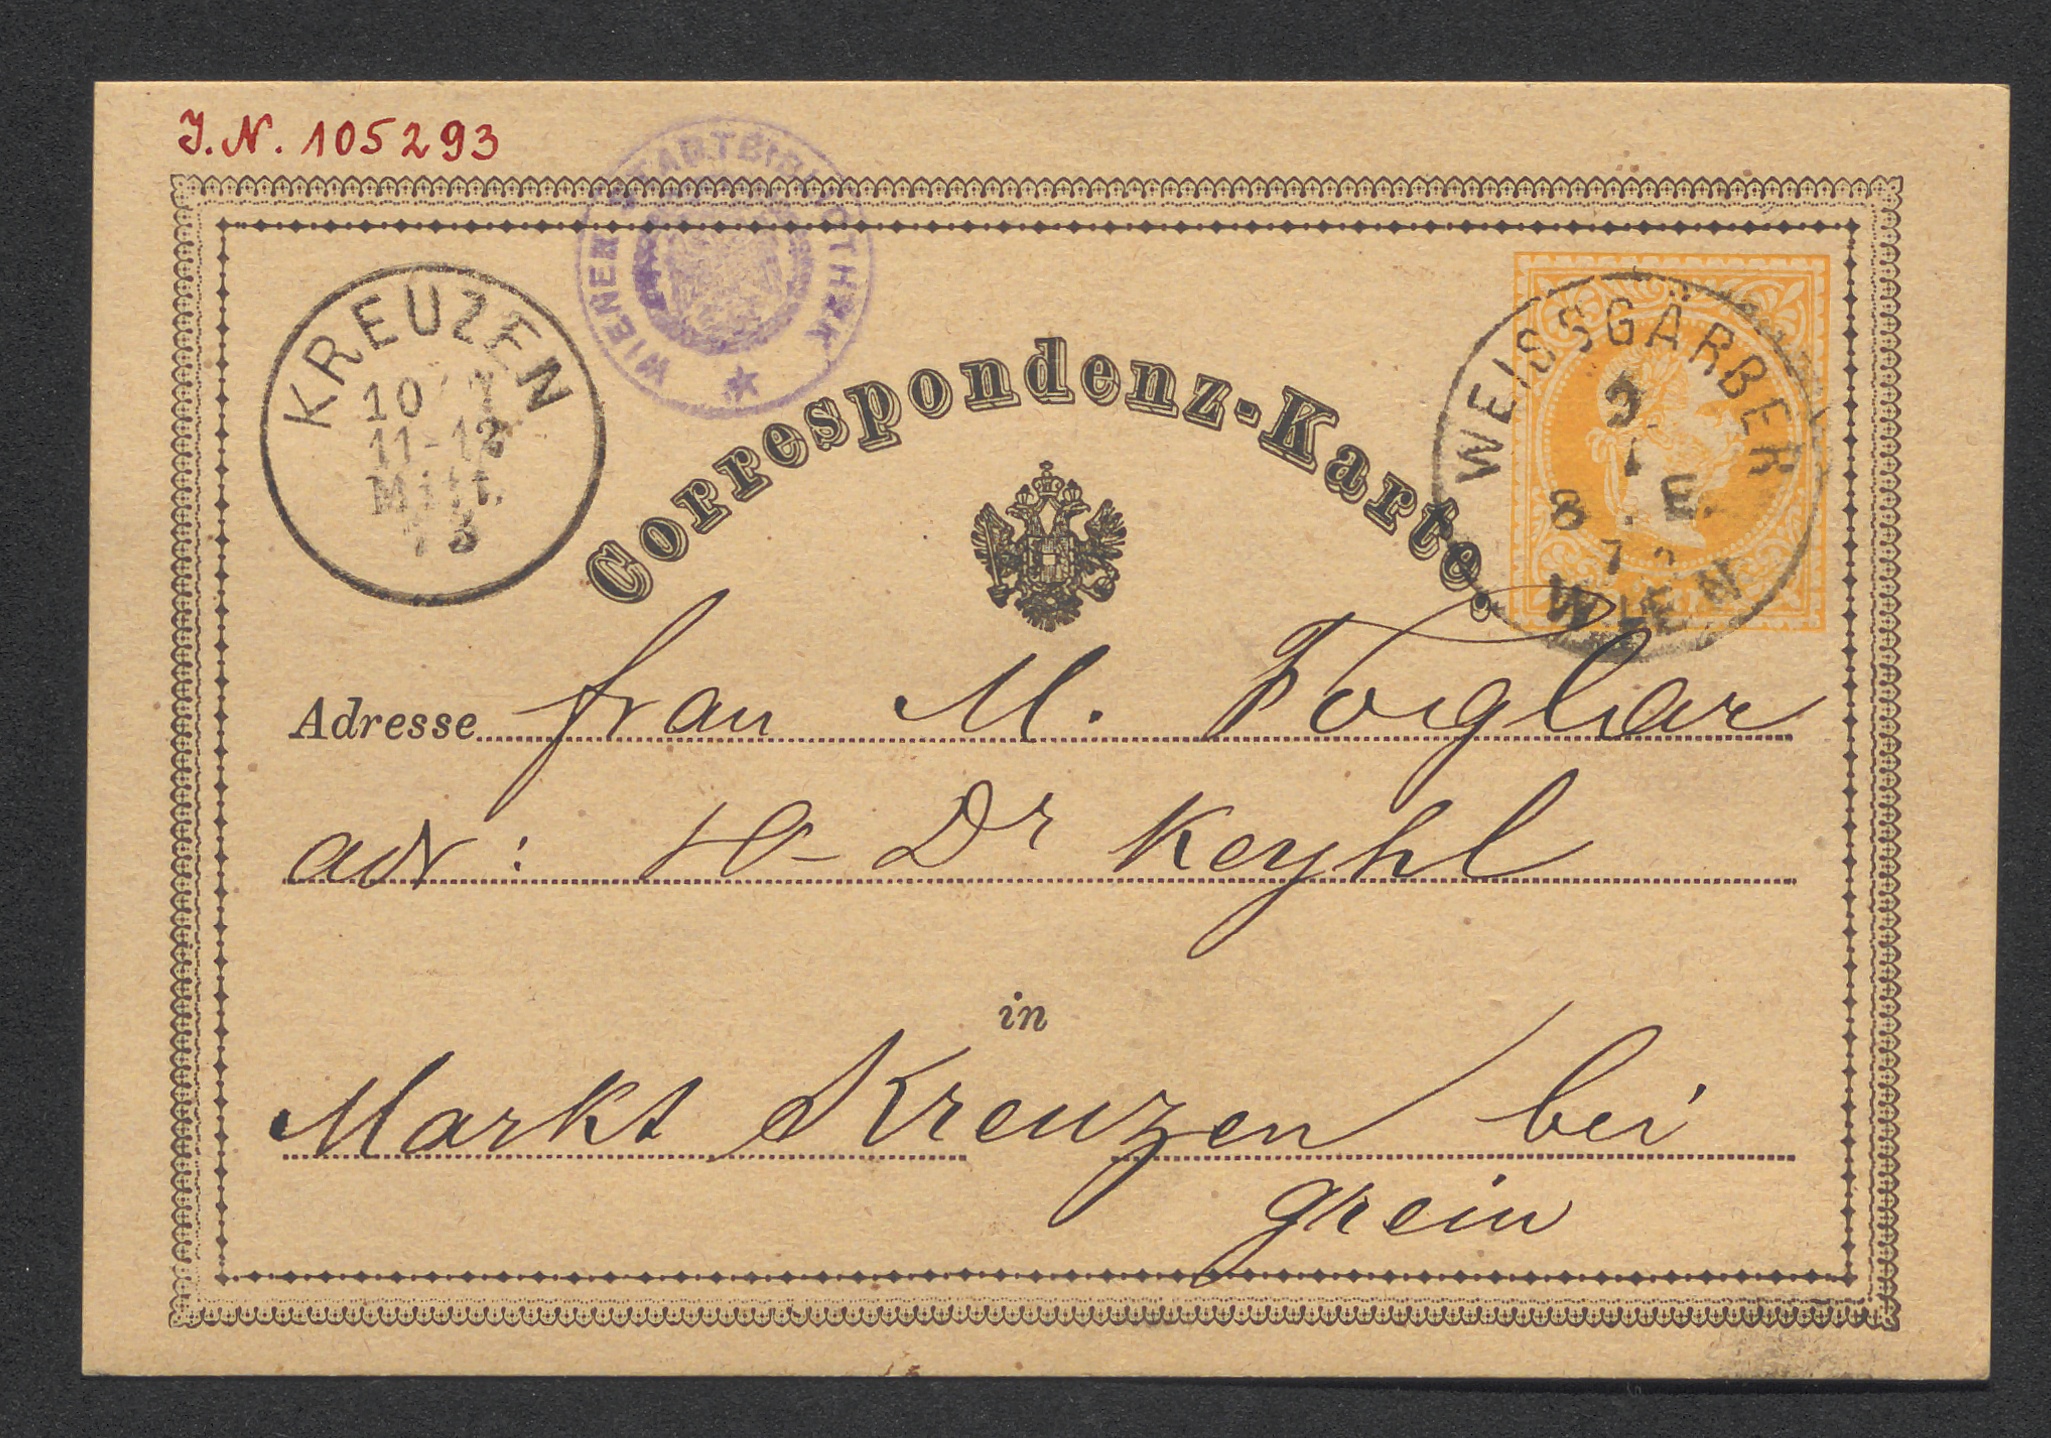 J. N. 105293
WIENER STADTBIBLIOTHEK
KREUZEN
10
11-12
Mitt.
73
Correspondenz-Karte.
WEISSGÄRBER
9
8 E.
WIEN
Adresse Frau M. Foglar
adr: H Dr Keyhl
in
Markt Kreuzen bei
Grein